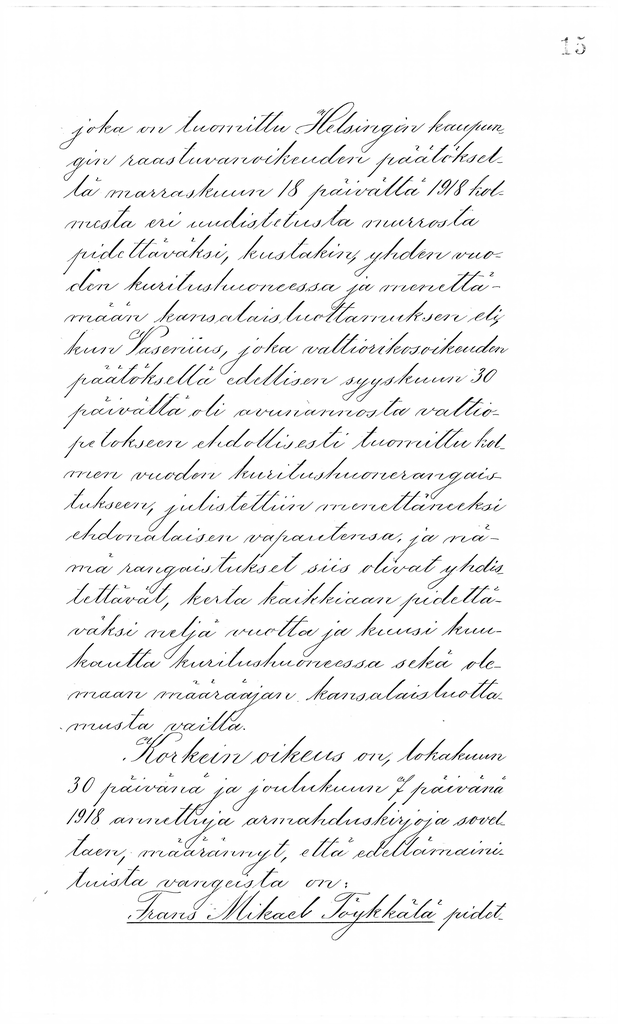 15
joka on tuomittu Helsingin kaupun-
gin raastuvanoikeuden päätöksel-
lä marraskuun 18 päivältä 1918 kol-
mesta eri uudistetusta murrosta
pidettäväksi, kustakin, yhden vuo-
den kuritushuoneessa ja menettä-
mään kansalaisluottamuksen eli,
kun Vasenius, joka valtiorikosoikeuden
päätöksellä edellisen syyskuun 30
päivältä oli avunannosta valtio-
petokseen ehdollisesti tuomittu kol-
men vuoden kuritushuonerangais-
tukseen, julistettiin menettäneeksi
ehdonalaisen vapautensa, ja nä-
mä rangaistukset siis olivat yhdis-
tettävät, kerta kaikkiaan pidettä-
väksi neljä vuotta ja kuusi kuu-
kautta kuritushuoneessa sekä ole-
maan määräajan kansalaisluotta-
musta vailla.
Korkein oikeus on, lokakuun
30 päivänä ja joulukuun 7 päivänä
1918 annettuja armahduskirjoja sovel-
taen, määrännyt, että edellämaini-
tuista vangeista on:
Frans Mikael Töykkälä pidet-